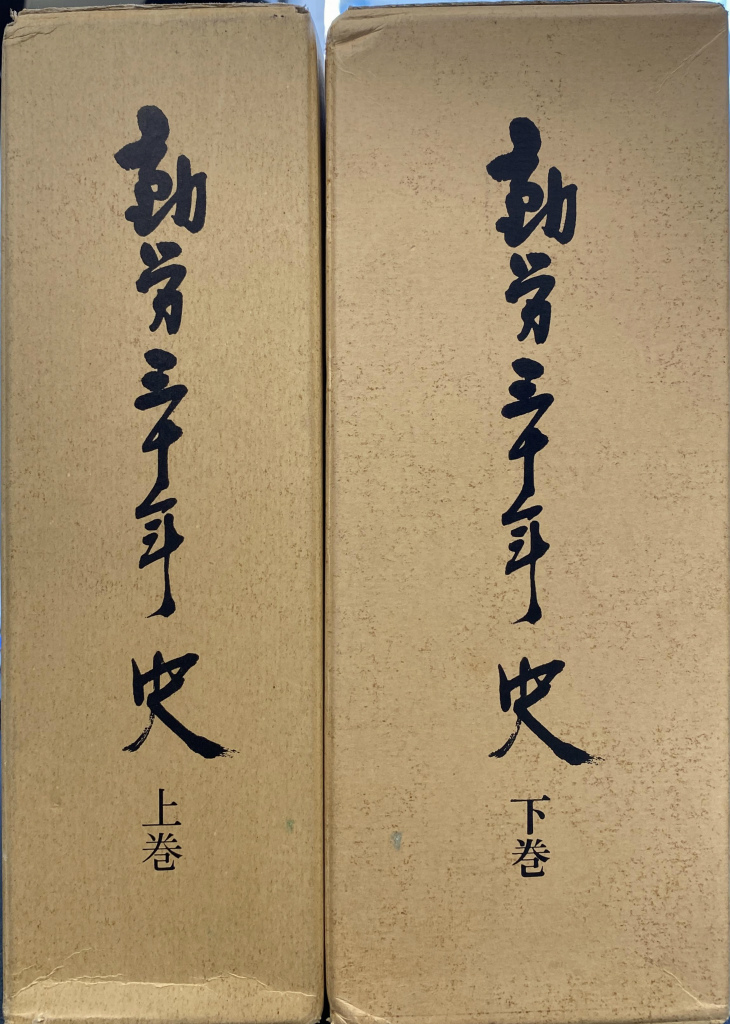 動労三十年史 上巻
動労三十年史 下巻